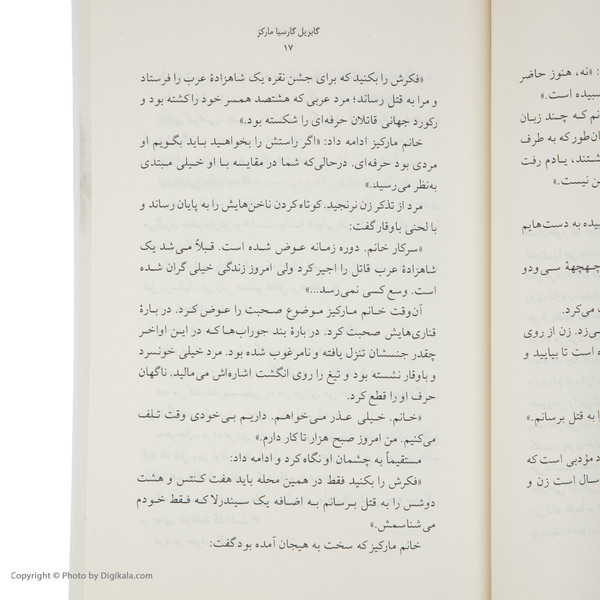 گابریل گارسیا مارکز
۱۷
«فکرش را بکنید که برای جشن نقره یک شاهزادهٔ عرب را فرستاد
و مرا به قتل رساند؛ مرد عربی که هشتصد همسر خود را کشته بود و
رکورد جهانی قاتلان حرفه‌ای را شکسته بود.»
خانم مارکیز ادامه داد: «اگر راستش را بخواهید باید بگویم او
مردی بود حرفه‌ای. درحالی‌که شما در مقایسه با او خیلی مبتدی
به‌نظر می‌رسید.»
مرد از تذکر زن نرنجید. کوتاه کردن ناخن‌هایش را به پایان رساند و
با لحنی باوقار گفت:
«سرکار خانم. دوره زمانه عوض شده است. قبلاً می‌شد یک
شاهزادهٔ عرب قاتل را اجیر کرد ولی امروز زندگی خیلی گران شده
است. وسع کسی نمی‌رسد...»
آن‌وقت خانم مارکیز موضوع صحبت را عوض کرد. در بارهٔ
قناری‌هایش صحبت کرد. در بارهٔ بند جوراب‌ها که در این اواخر
چقدر جنسشان تنزل یافته و نامرغوب شده بود. مرد خیلی خونسرد
و باوقار نشسته بود و تیغ را روی انگشت اشاره‌اش می‌مالید. ناگهان
حرف او را قطع کرد.
«خانم. خیلی عذر می‌خواهم. داریم بی‌خودی وقت تلف
می‌کنیم. من امروز صبح هزار تا کار دارم.»
مستقیماً به چشمان او نگاه کرد و ادامه داد:
«فکرش را بکنید فقط در همین محله باید هفت کنتس و هشت
دوشس را به قتل برسانم به اضافه یک سیندرلا که فقط خودم
می‌شناسمش.»
خانم مارکیز که سخت به هیجان آمده بود گفت:
: «نه، هنوز حاضر
سبیده است.»
نم که چند زبان
ان‌طور که به طرف
شتند، یادم رفت
ن نیست.»
یده به دست‌هایم
چهچههٔ سی‌ودو
ت می‌کرد.
ی‌زد. زن از روی
ه است تا بیایید و
ا به قتل برسانم.»
د مؤدبی است که
سال است زن و
Copyright © Photo by Digikala.com